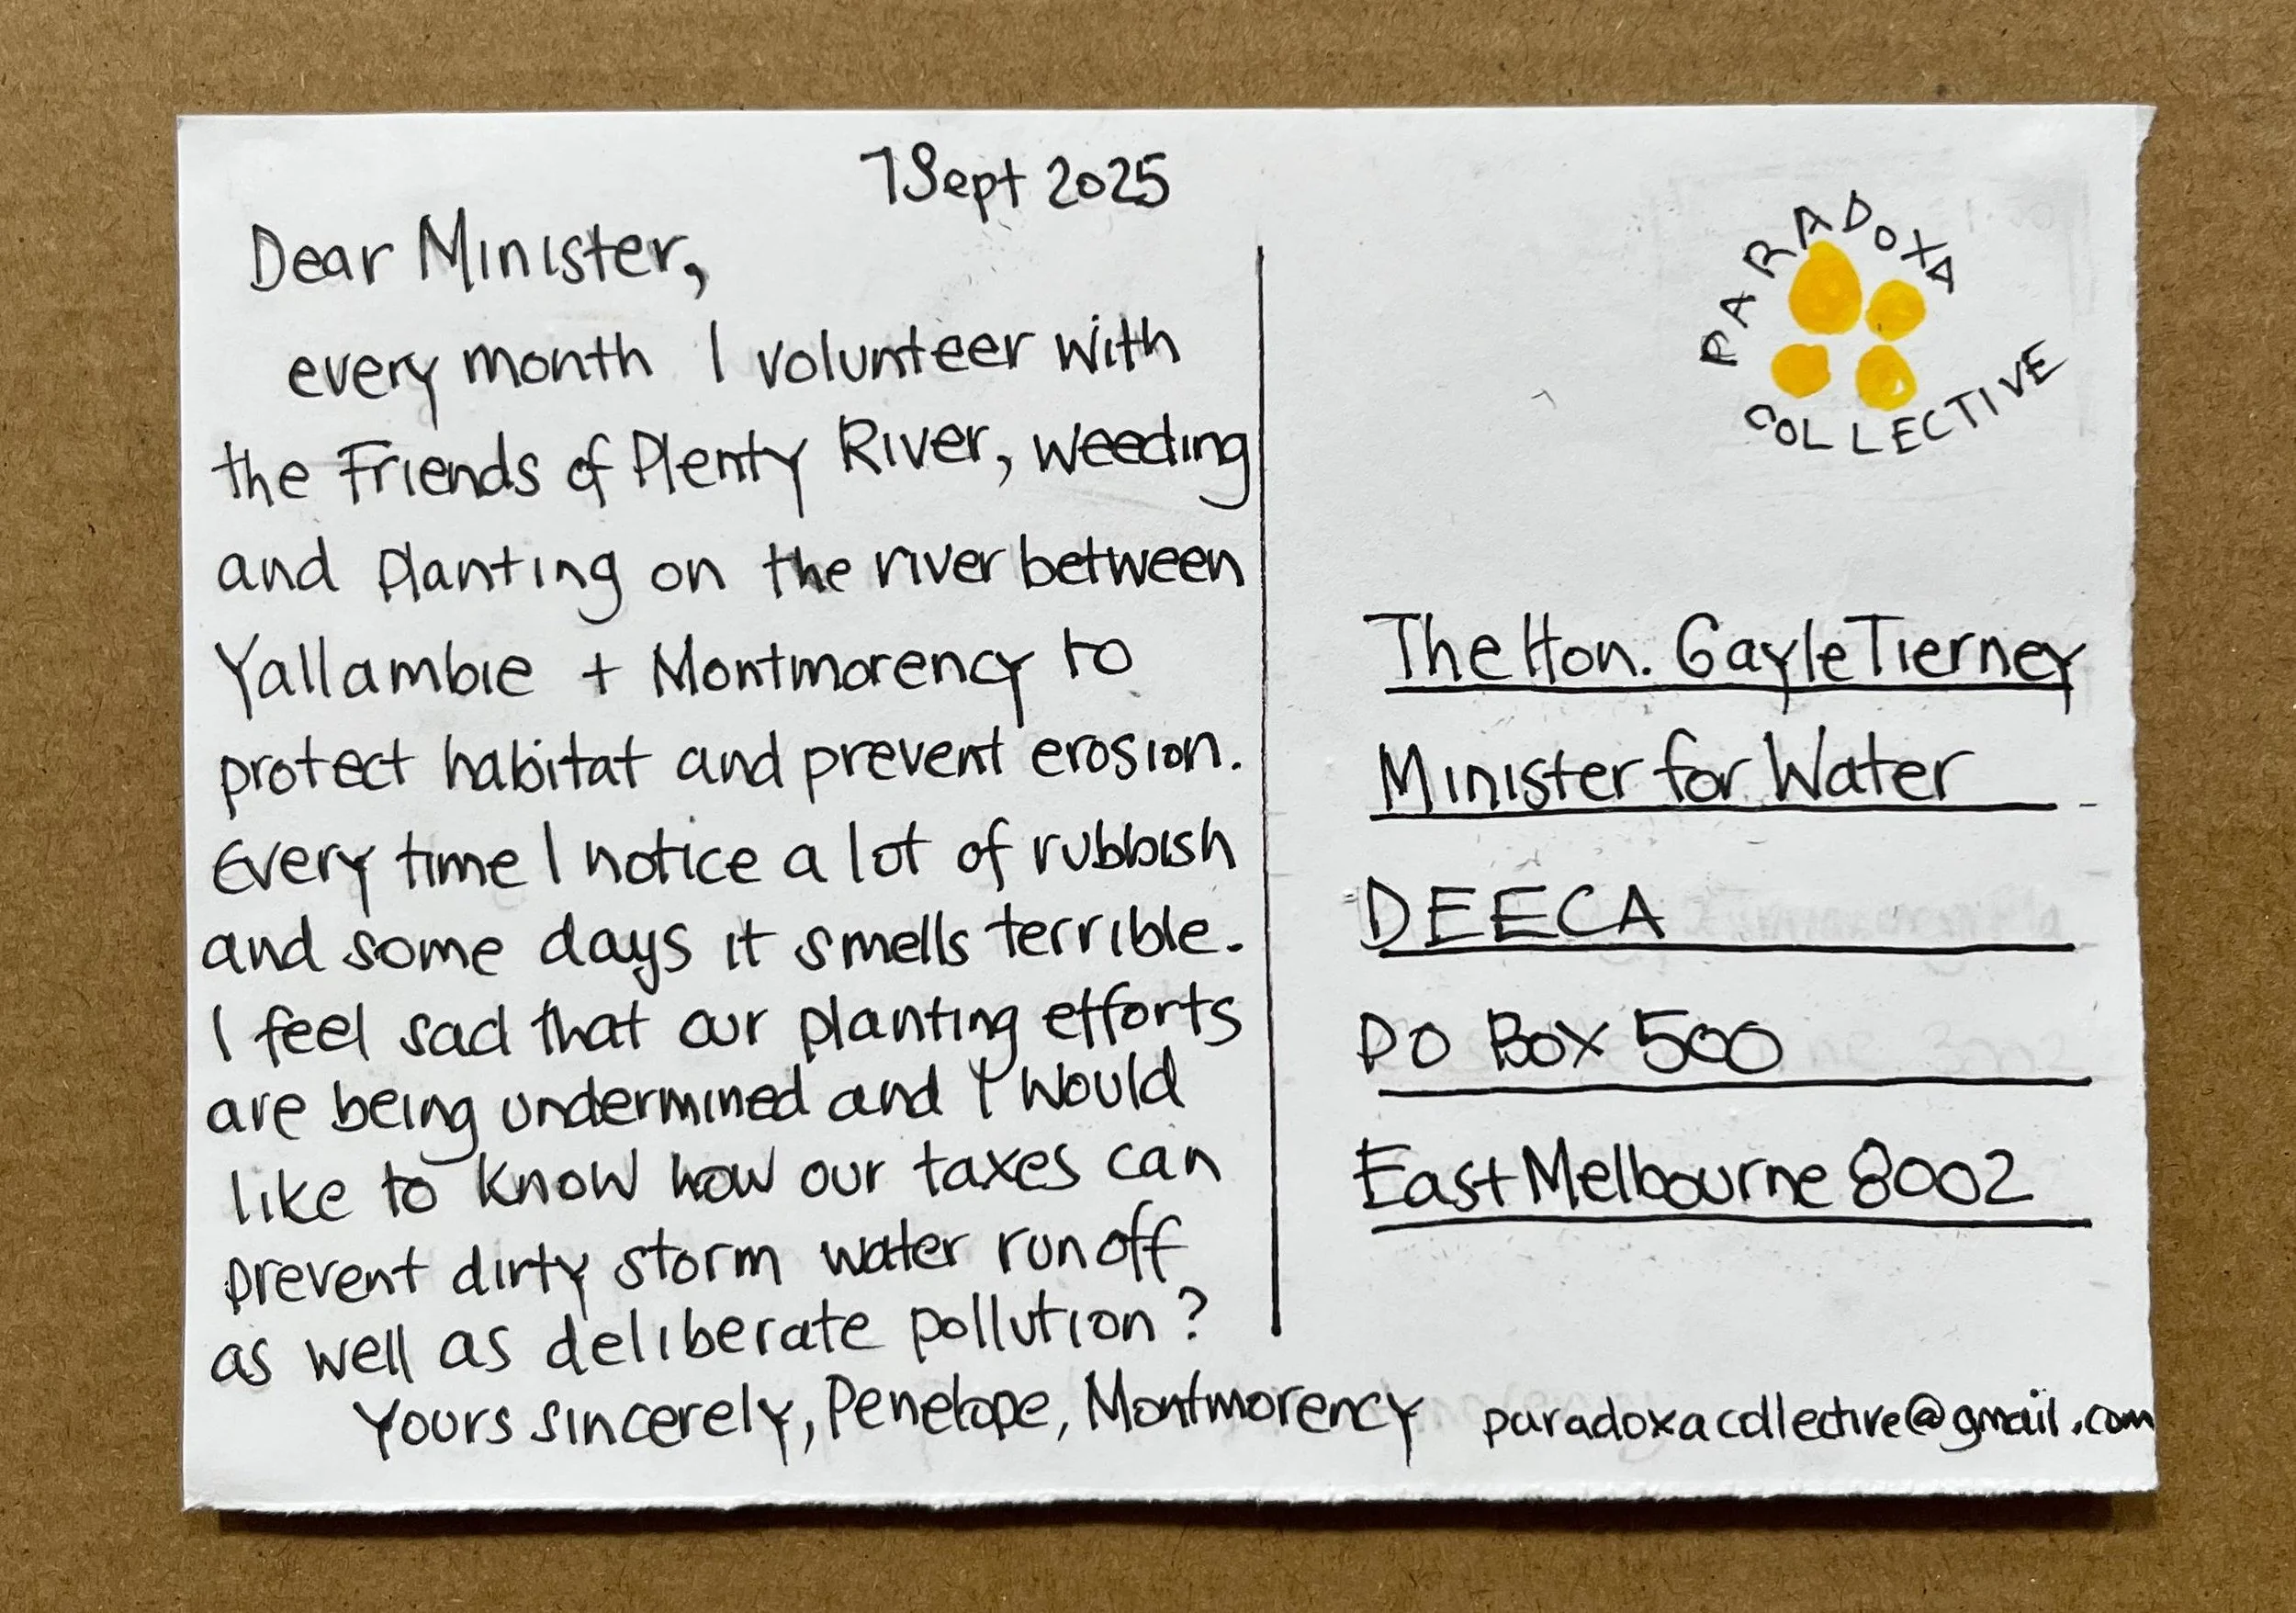 7 Sept 2025
Dear Minister,
every month I volunteer with
the Friends of Plenty River, weeding
and planting on the river between
Yallambie + Montmorency to
protect habitat and prevent erosion.
Every time I notice a lot of rubbish
and some days it smells terrible.
I feel sad that our planting efforts
are being undermined and I would
like to know how our taxes can
prevent dirty storm water run off
as well as deliberate pollution?
Yours sincerely, Penelope, Montmorency
PARADOXA
COLLECTIVE
The Hon. Gayle Tierney
Minister for Water
DEECA
PO Box 500
East Melbourne 8002
paradoxacollective@gmail.com